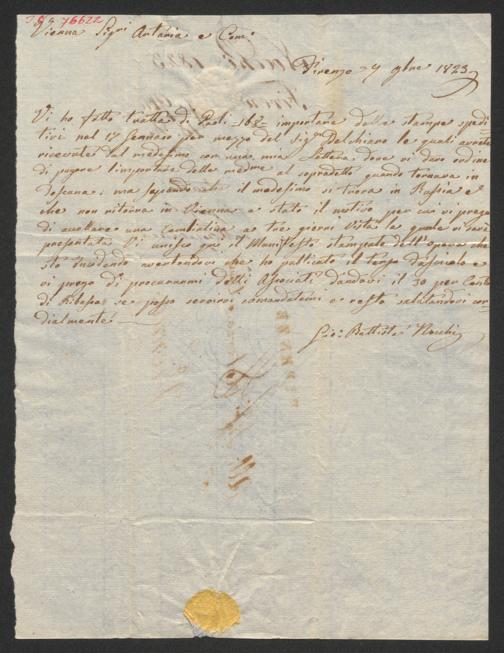 76622
Vienna Sigri Artaria e Com:
Firenze 9 9bre 1823
Vi ho fatto tratta di importare delle stampe spedi
tivi nel 17 Gennaro per mezzo del Sigr Delchiaro le quali avrete
ricevute dal medesimo con una mia Lettera dove vi davo ordine
di pagare l'importare delle medme al sopradetto quando tornava in
Toscana; ma sapendo che il medesimo si trova in Russia e
che non ritorna in Vienna è stato il motivo per cui vi prego
di accettare una Cambialina a tre giorni Vista la quale vi sarà
presentata. Vi unisco qui il Manifesto stampato dell'opera che
stò incidendo avertendovi che ho publicato il terzo fascicolo e
vi prego di procurarmi delli Associati dandovi il 30 per Cento
di Rilascio se posso servirvi comandatemi e resto salutandovi cor
dialmente
Gio: Battista Nocchi